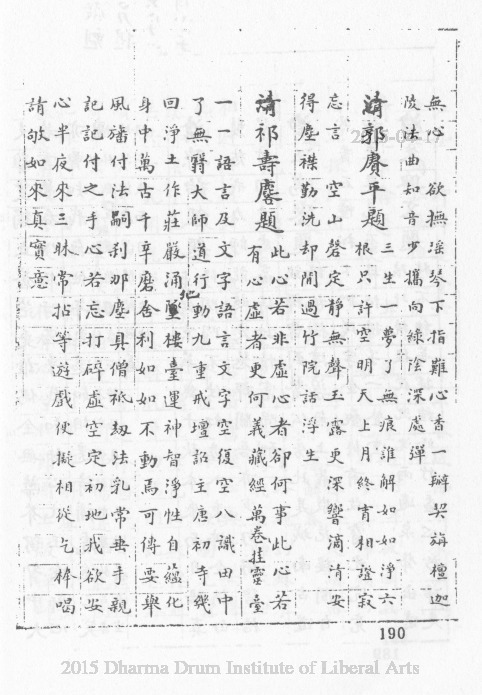 無心　欲撫瑤琴下指難心香一瓣契旃檀迦
陵法曲知音少攜向綠陰深處彈
清郭賡平題
三生一夢了無痕誰解如如淨六
根只許空明天上月終宵相證寂
忘言　空山磬定靜無聲玉露更深響滴清安
得塵襟勤洗却閒過竹院話浮生
清祁壽麐題
此心若非虛心者卻何事此心若
有心虛者更何義藏經萬卷挂靈臺
一一語言及文字語言文字空復空八識田中
了無翳大師道行動九重戒壇詔主唐初寺幾
回淨土作莊嚴涌地樓臺運神智淨性自蘊化
身中萬古千辛磨舍利如如不動焉可傳要舉
風旛付法嗣剎那塵具僧祇劫法乳常垂手親
記記付之手心若忘打碎虛空定初地我欲安
心半夜來三昧常拈等遊戲便擬相從乞棒唱
請敂如來真實意
190
2015 Dharma Drum Institute of Liberal Arts